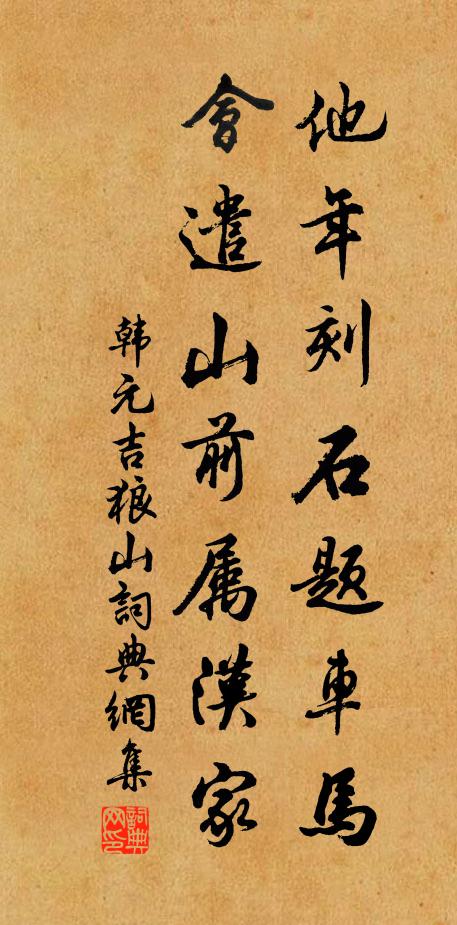 他年刻石题車馬
會遣山前属漢家
韩元吉狼山詞典網集
詞典网印